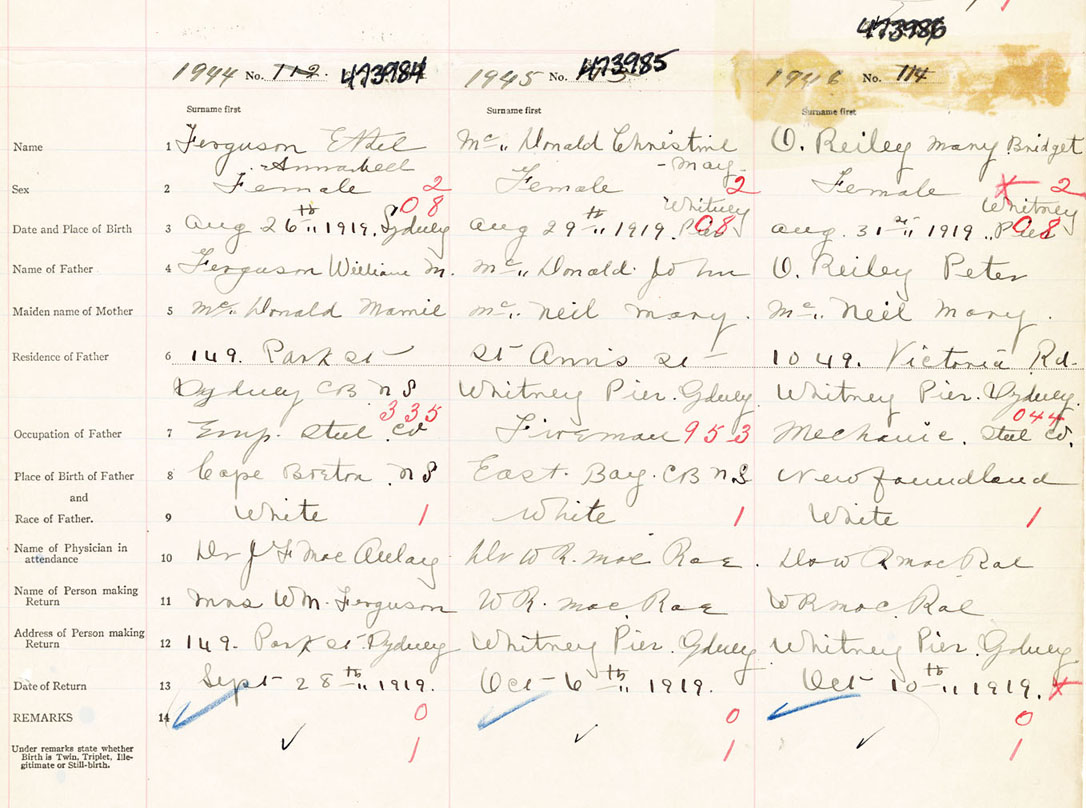 473986
1944 No. 112. 473984 1945 No. 473985 1946 No. 114
Surname first Surname first Surname first
Name 1 Ferguson Ethel Mc„ Donald Christine O. Reiley Mary Bridget
Annabell - May
Sex 2 Female 2 Female 2 Female X 2
08 Whitney Whitney
Date and Place of Birth 3 Aug 26th„ 1919. Sydney Aug 29th„ 1919. Pier 08 Aug. 31st„ 1919 „ Pier 08
Name of Father 4 Ferguson William M. Mc„ Donald. John O. Reiley Peter
Maiden name of Mother 5 Mc„ Donald Mamie Mc„ Neil Mary. Mc„ Neil Mary.
Residence of Father 6 149. Park St St Ann's St 1049. Victoria Rd.
Sydney CB. NS Whitney Pier. Sydney Whitney Pier. Sydney.
335 044
Occupation of Father 7 Emp. Steel Co Fireman 953 Mechanic. Steel Co.
Place of Birth of Father 8 Cape Breton. NS East. Bay. CB NS Newfoundland
and
Race of Father. 9 White 1 White 1 White 1
Name of Physician in
attendance 10 Dr J F Mac Aulay Dr W R. Mac Rae. Dr W R Mac Rae
Name of Person making
Return 11 Mrs WM. Ferguson W R. Mac Rae W R Mac Rae
Address of Person making
Return 12 149. Park St. Sydney Whitney Pier. Sydney Whitney Pier. Sydney
Date of Return 13 Sept 28th„ 1919. Oct 6th„ 1919. Oct 10th„ 1919. X
REMARKS 14 0 0 0
Under remarks state whether
Birth is Twin, Triplet, Ille-
gitimate or Still-birth. 1 1 1